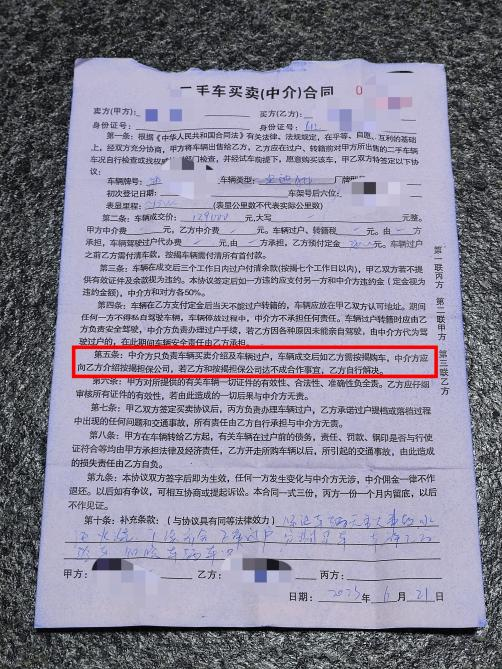 二手车买卖(中介)合同
卖方(甲方): 买方(乙方):
身份证号: 身份证号:
第一条：根据《中华人民共和国合同法》有关法律、法规规定，在平等、自愿、互利的基础
上，经双方充分协商，甲方将车辆出售给乙方，乙方应在过户、转籍前对甲方所出售的二手车辆
车况自行检查或找权威 部门检查，并经试车前提下，愿意购买该车，甲乙双方特签定以下协
议：
车辆牌号： 车辆类型： 厂牌型号
初次登记日期： 车架号后六位：
表显里程： (表显公里数不代表实际公里数)
第二条：车辆成交价： 129000 元,大写 元整。
甲方中介费 元,乙方中介费 元。车辆过户、转籍税 元，由 方
承担，车辆驾驶过户代办费 元，由 方承担，乙方预付定金 元。车辆过户
之前乙方需付清所有余款，按揭车辆需付清所有首付款。
第三条：车辆在成交后三个工作日内过户付清余款(按揭七个工作日以内)，甲乙双方若不提
供有效证件及余款视为违约。本协议签定后如一方违约应支付另一方和中介方违约金（定金视为
违约金额)，中介方和对方各50%。
第四条：车辆在乙方付定金后当天不能过户转籍的，车辆应放在甲乙双方认可地址。期间
任何一方不得私自驾驶车辆，车辆停放过程中，中介方不承担任何责任。车辆过户转籍时应由乙
方负责安全驾驶，中介方负责办理过户手续，若乙方因各种原因未能亲自驾驶，由中介方代为驾
驶过户的，在此期间车辆受损与中介方无责。
第五条：中介方只负责车辆买卖介绍及车辆过户，车辆成交后如乙方需按揭购车，中介方应
向乙方介绍按揭担保公司，若乙方和按揭担保公司达不成合作事宜，乙方自行解决。
第六条：甲方对所提供的有关车辆一切证件的有效性、合法性、准确性负全责。乙方应仔细
审核所有证件的有效性，若由此造成的一切后果与中介方无责。
第七条：甲乙双方签定买卖协议后，丙方负责办理车辆过户，乙方承诺过户提档或落档过程
中出现的任何问题和交通事故，所有责任由乙方自行承担与中介方无责。
第八条：甲方在车辆转给乙方起，有关车辆在过户前的债务，责任、罚款、钢印是否与行使
证符合等均由甲方承担法律及经济责任，乙方开走所购车辆以后，所引起的交通事故，由此造成
的损失责任由乙方自负。
第九条：本协议双方签字后即为生效，任何一方发生变化与中介方无涉，中介佣金一律不作
退还。以后如有争议，可相互协商或提起诉讼。本合同一式三份，丙方一份一个月内留底，以后
不作见证。
第十条：补充条款：（与协议具有同等法律效力）
甲方： 乙方： 丙方：
日期： 2023 年 6 月 21 日
第一联丙方 第二联甲方 第三联乙方